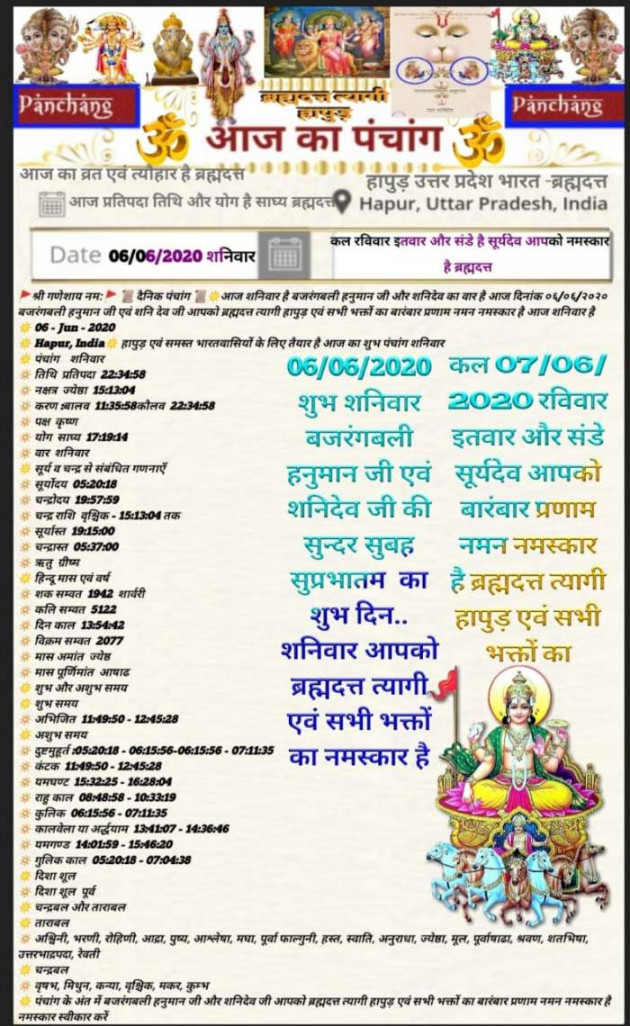 ब्रह्मदत्त त्यागी
हापुड़
Pànchàng
Pànchàng
ॐ आज का पंचांग ॐ
आज का व्रत एवं त्यौहार है ब्रह्मदत्त
हापुड़ उत्तर प्रदेश भारत -ब्रह्मदत्त
आज प्रतिपदा तिथि और योग है साघ्य ब्रह्मदत्त
Hapur, Uttar Pradesh, India
Date 06/06/2020 शनिवार
कल रविवार इतवार और संडे है सूर्यदेव आपको नमस्कार
है ब्रह्मदत्त
🚩श्री गणेशाय नम:🚩 📜 दैनिक पंचांग 📜 ☀आज शनिवार है बजरंगबली हनुमान जी और शनिदेव का वार है आज दिनांक ०६/०६/२०२०
बजरंगबली हनुमान जी एवं शनि देव जी आपको ब्रह्मदत्त त्यागी हापुड़ एवं सभी भक्तों का बारंबार प्रणाम नमन नमस्कार है आज शनिवार है
☀ 06 - Jun - 2020
☀ Hapur, India☀ हापुड़ एवं समस्त भारतवासियों के लिए तैयार है आज का शुभ पंचांग शनिवार
☀ पंचांग शनिवार
☀ तिथि प्रतिपदा 22:34:58
☀ नक्षत्र ज्येष्ठा 15:13:04
☀ करण :बालव 11:35:58कौलव 22:34:58
☀ पक्ष कृष्ण
☀ योग साघ्य 17:19:14
☀ वार शनिवार
☀ सूर्य व चन्द्र से संबंधित गणनाएँ
☀ सूर्योदय 05:20:18
☀ चन्द्रोदय 19:57:59
☀ चन्द्र राशि वृश्चिक - 15:13:04 तक
☀ सूर्यास्त 19:15:00
☀ चन्द्रास्त 05:37:00
☀ ऋतु ग्रीष्म
☀ हिन्दू मास एवं वर्ष
☀ शक सम्वत 1942 शार्वरी
☀ कलि सम्वत 5122
☀ दिन काल 13:54:42
☀ विक्रम सम्वत 2077
☀ मास अमांत ज्येष्ठ
☀ मास पूर्णिमांत आषाढ
☀ शुभ और अशुभ समय
☀ शुभ समय
☀ अभिजित 11:49:50 - 12:45:28
☀ अशुभ समय
☀ दुष्टमुहूर्त :05:20:18 - 06:15:56-06:15:56 - 07:11:35
☀ कंटक 11:49:50 - 12:45:28
☀ यमघण्ट 15:32:25 - 16:28:04
☀ राहु काल 08:48:58 - 10:33:19
☀ कुलिक 06:15:56 - 07:11:35
☀ कालवेला या अर्द्धयाम 13:41:07 - 14:36:46
☀ यमगण्ड 14:01:59 - 15:46:20
☀ गुलिक काल 05:20:18 - 07:04:38
☀ दिशा शूल
☀ दिशा शूल पूर्व
☀ चन्द्रबल और ताराबल
☀ ताराबल
☀ अश्विनी, भरणी, रोहिणी, आद्रा, पुष्य, आश्लेषा, मघा, पूर्वा फाल्गुनी, हस्त, स्वाति, अनुराधा, ज्येष्ठा, मूल, पूर्वाषाढा, श्रवण, शतभिषा,
उत्तरभाद्रपदा, रेवती
☀ चन्द्रबल
☀ वृषभ, मिथुन, कन्या, वृश्चिक, मकर, कुम्भ
☀ पंचांग के अंत में बजरंगबली हनुमान जी और शनिदेव जी आपको ब्रह्मदत्त त्यागी हापुड़ एवं सभी भक्तों का बारंबार प्रणाम नमन नमस्कार है
नमस्कार स्वीकार करें
06/06/2020
शुभ शनिवार
बजरंगबली
हनुमान जी एवं
शनिदेव जी की
सुन्दर सुबह
सुप्रभातम का
शुभ दिन..
शनिवार आपको
ब्रह्मदत्त त्यागी
एवं सभी भक्तों
का नमस्कार है
कल 07/06/
2020 रविवार
इतवार और संडे
सूर्यदेव आपको
बारंबार प्रणाम
नमन नमस्कार
है ब्रह्मदत्त त्यागी
हापुड़ एवं सभी
भक्तों का